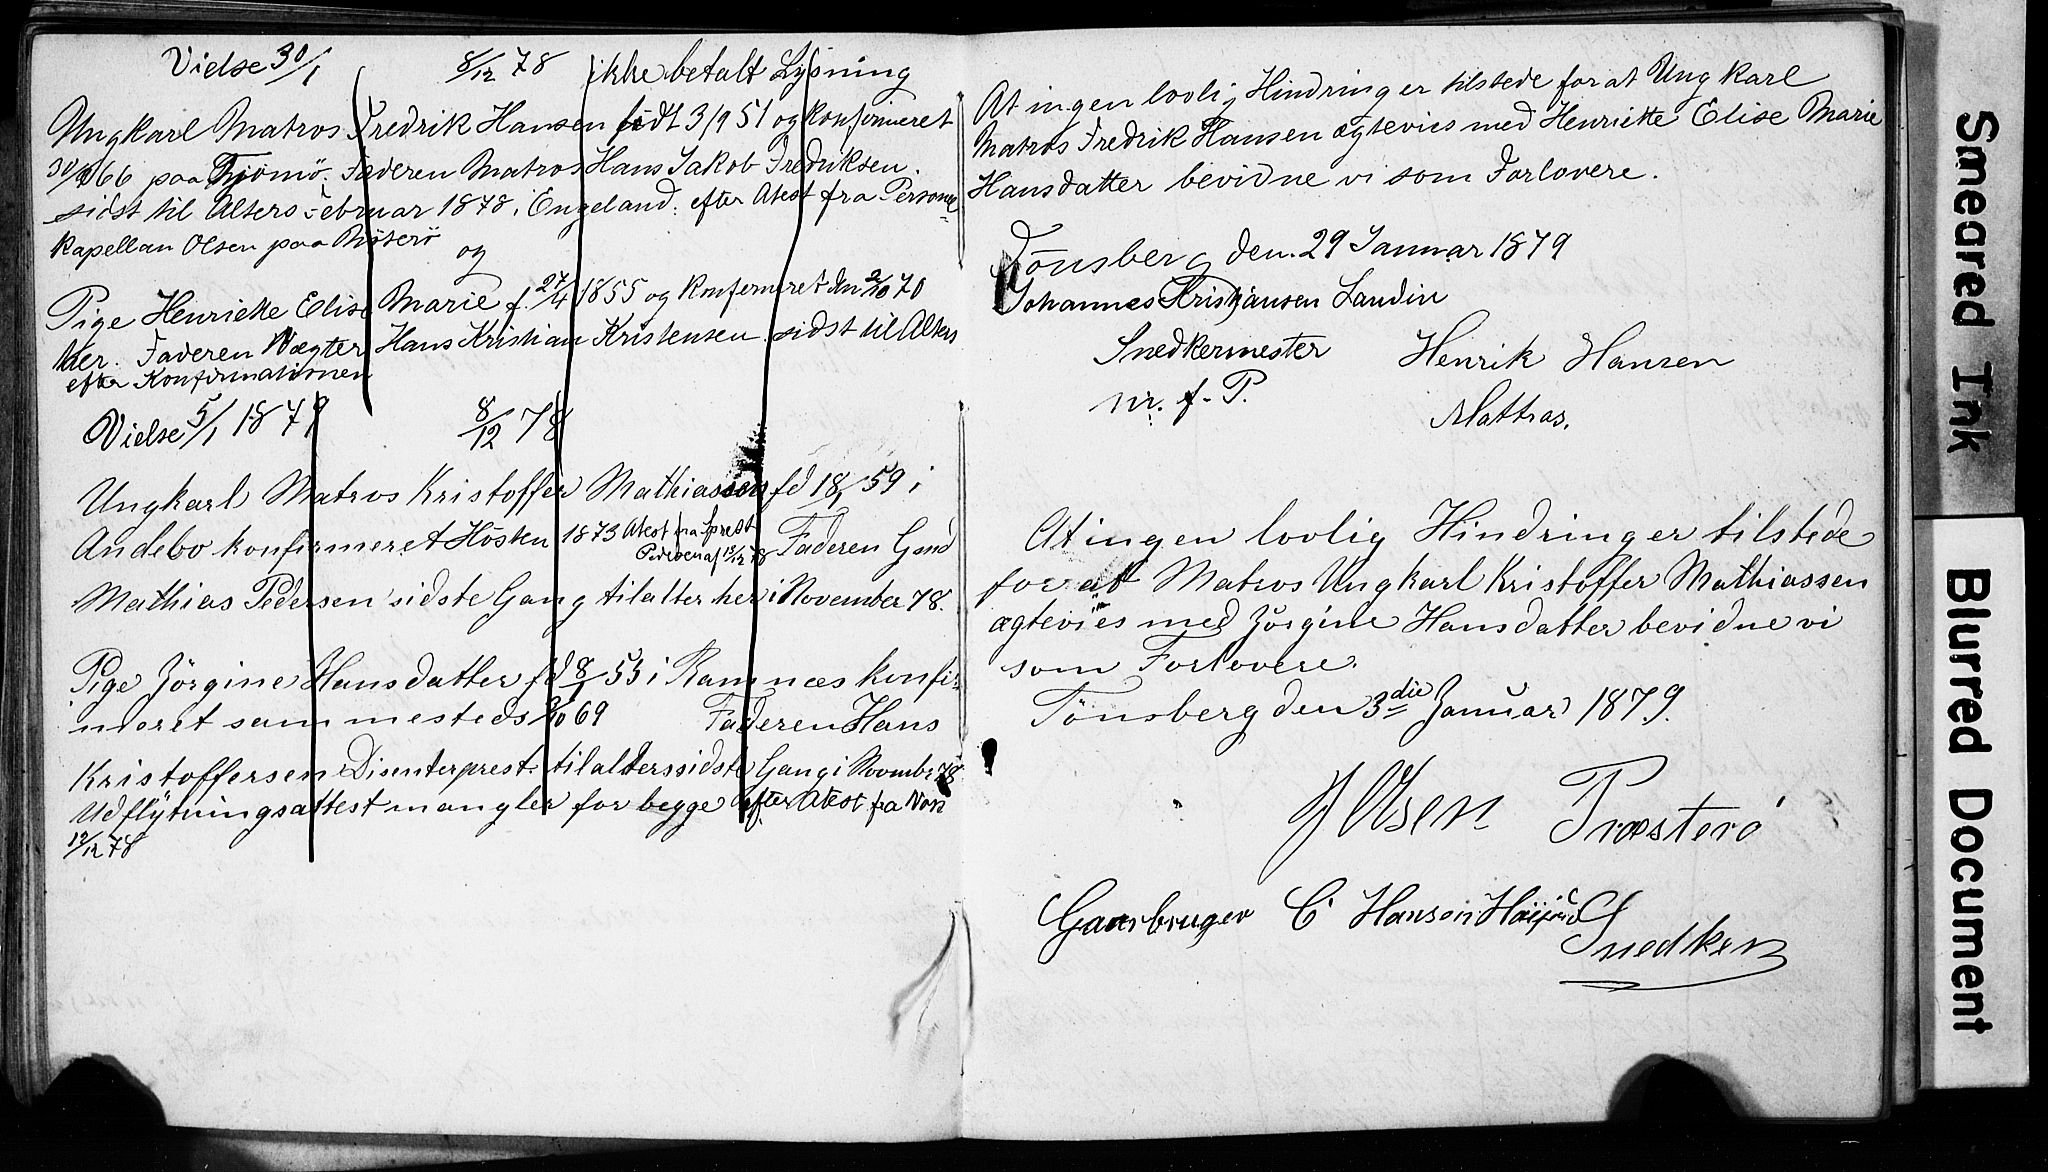 Vielse 30/1 8/12 78 ikke betalt Lysning
Ungkarl Matros Fredrik Hansen født 3/9 51 og konfirmeret
66 paa Tjömö. Faderen Matros Hans Jakob Fredriksen.
sidst til Alters Februar 1878 i Engeland. efter Atest fra Personel
kapellan Olsen paa
og
Pige Henriette Elise Marie f. 27/4 1855 og konfirmeret den 2/10 70
her. Faderen Vægter Hans Kristian Kristensen sidst til Alters
efter Konfirmationen
Vielse 5/1 1879 8/12 78
Ungkarl Matros Kristoffer Mathiassen fd 18/1 59 i
Andebo konfirmeret Hösten 1873 Atest fra Sprest
Pedersen af 15/12 78 Faderen Gmd
Mathias Pedersen sidste Gang tilalter her i November 78.
Pige Jörgine Hansdatter fd 8/1 53 i Ramnæs konfir-
meret sammesteds 69 Faderen Hans
Kristoffersen Disenterprest tilalters sidste Gang i Novembr 78
Udflytningsattest mangler for begge efter Atest fra
12/12 78
At ingen lovlig Hindring er tilstede for at Ungkarl
Matros Fredrik Hansen ægtevies med Henriette Elise Marie
Hansdatter bevidne vi som Forlovere.
Tönsberg den 29 Januar 1879
Johannes Kristjansen Sandin
Snedkermester Henrik Hansen
m. f. P. Mattros.
At ingen lovlig Hindring er tilstede
for at Matros Ungkarl Kristoffer Mathiassen
ægtevies med Jörgine Hansdatter bevidne vi
som Forlovere.
Tönsberg den 3die Januar 1879.
Olsen Præsterö
Gaarbruger C Hansen
Snedker
Smeared Ink
Blurred Document